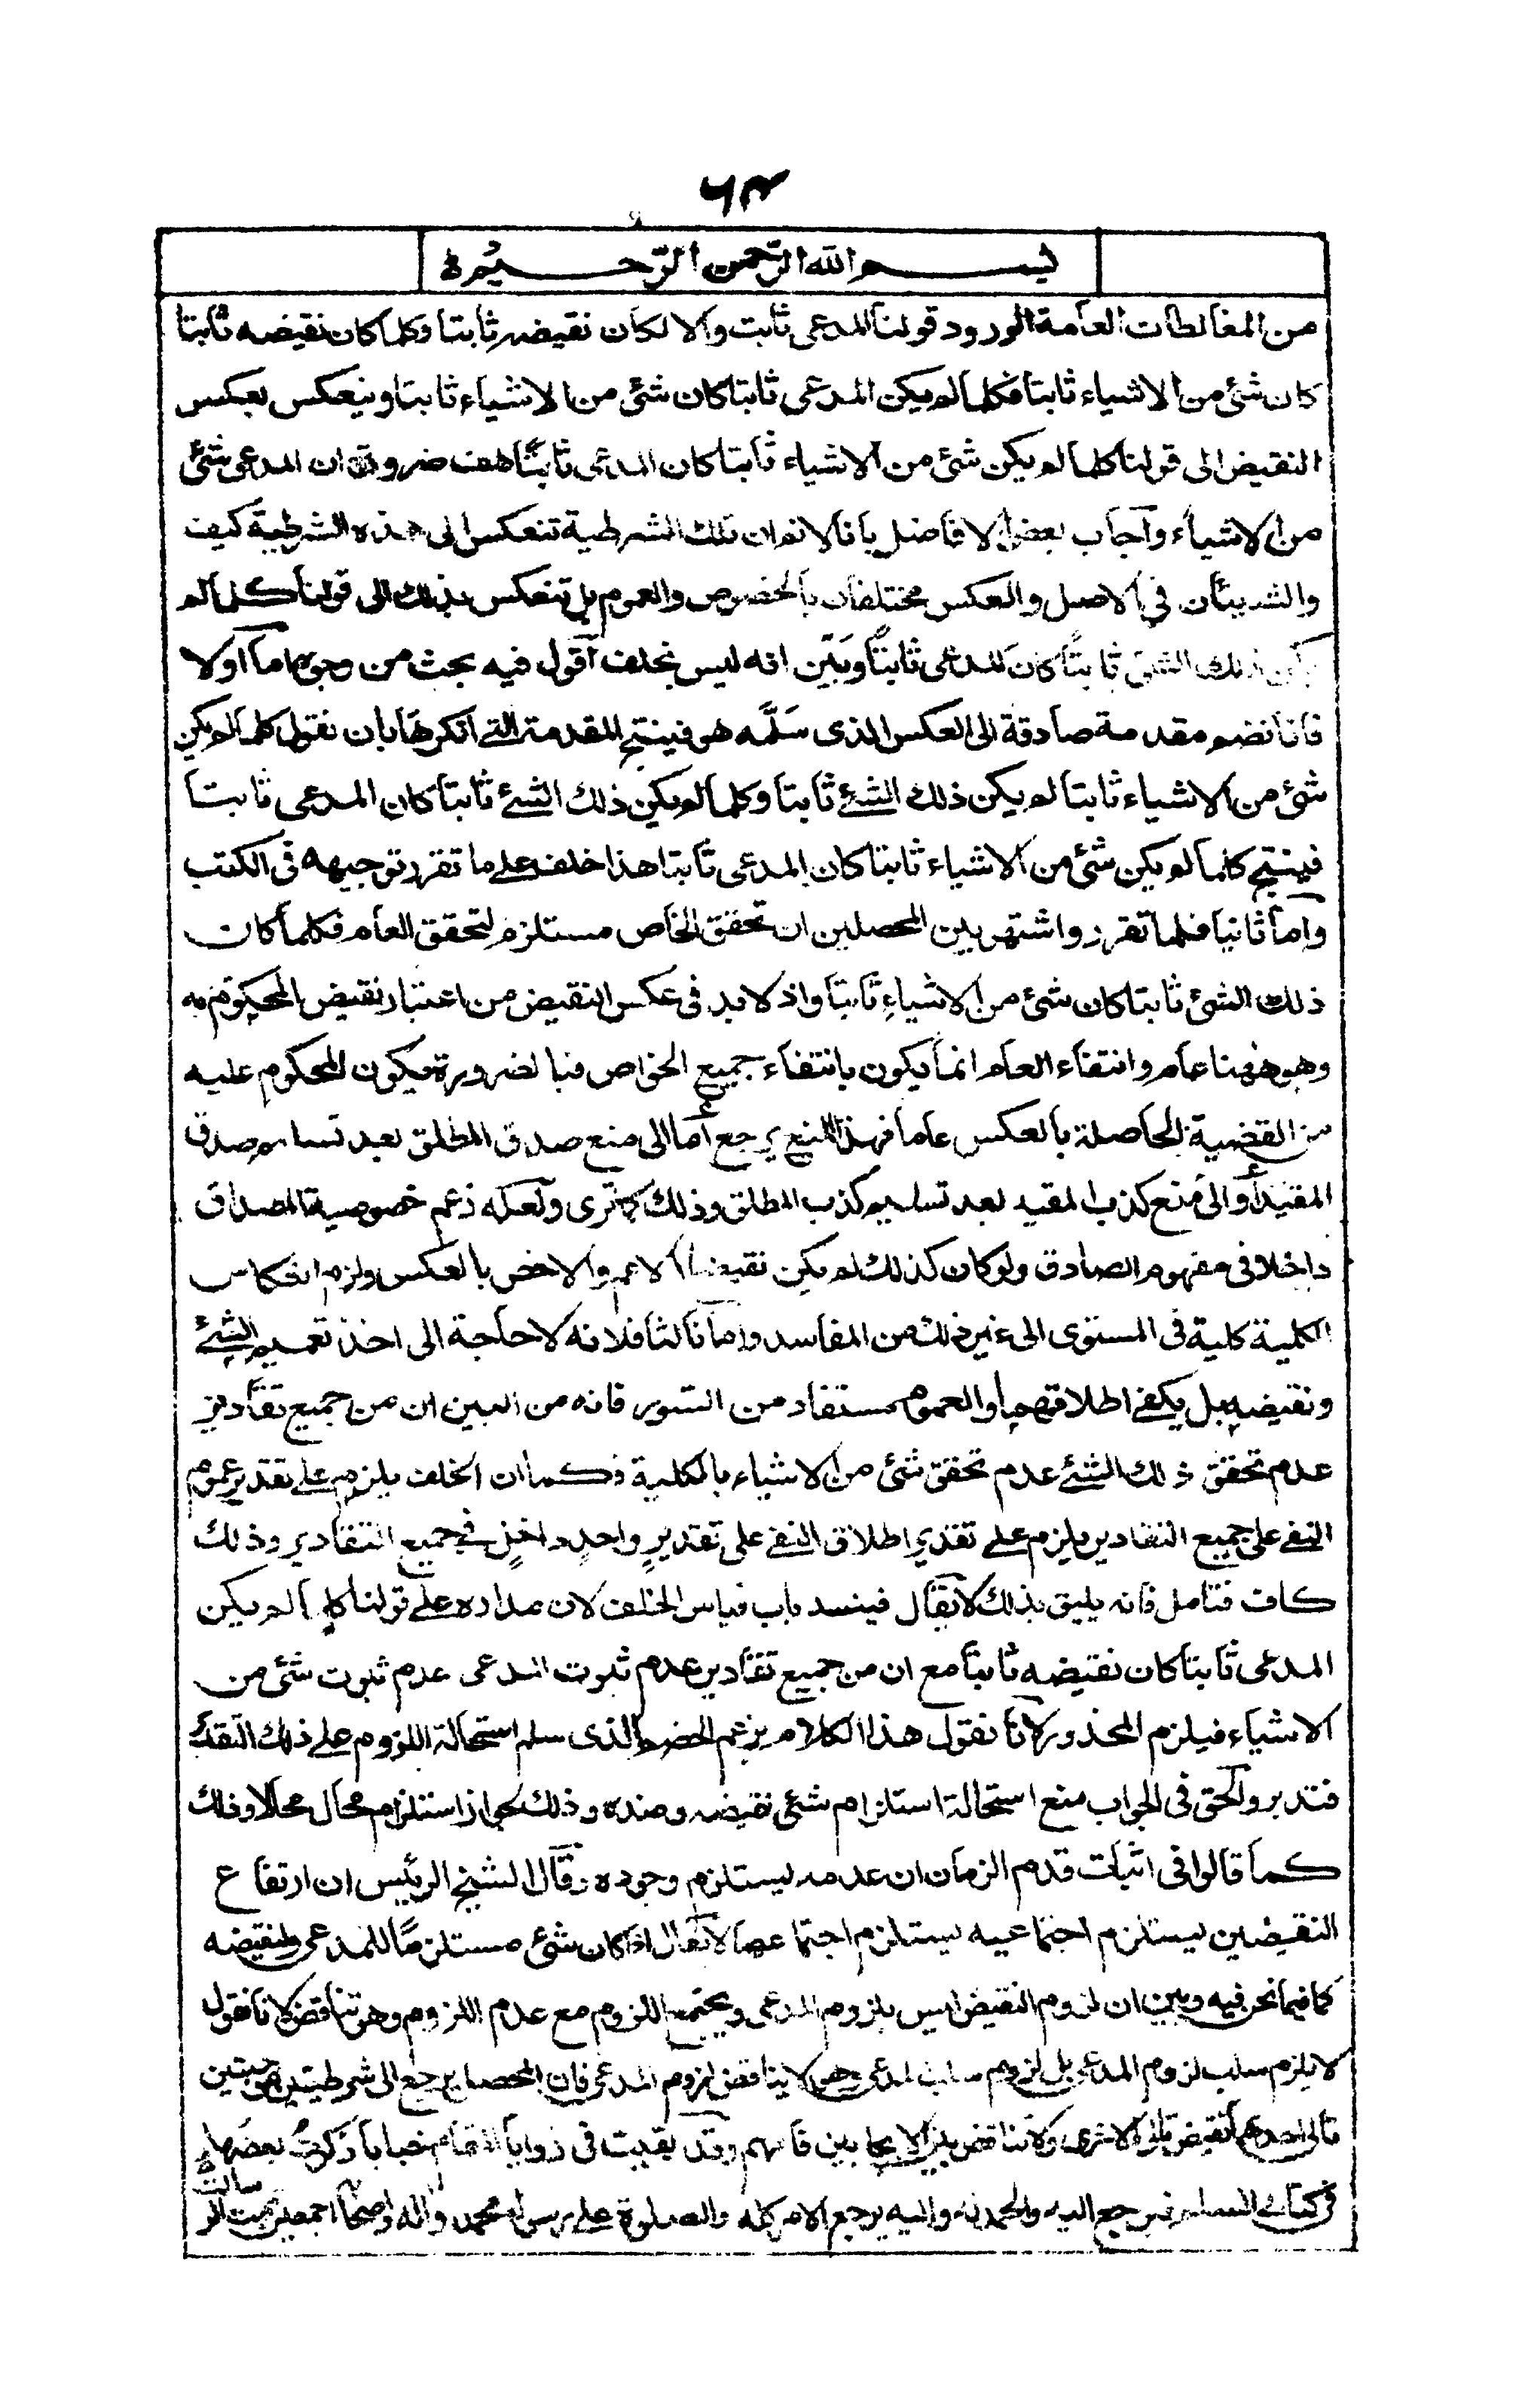 ٦٣
بسم الله الرحمن الرحيم
من المغالطات العامة الورود قولنا المدعى ثابت والا لكان نقيضه ثابتا وكلما كان نقيضه ثابتا
كان شئ من الاشياء ثابتا فكلما لم يكن المدعى ثابتا كان شئ من الاشياء ثابتا وينعكس بعكس
النقيض الى قولنا كلما لم يكن شئ من الاشياء ثابتا كان المدعى ثابتًا هف ضرورة ان المدعى شئ
من الاشياء وآجاب بعض الافاضل بانا لا نم ان تلك الشرطية تنعكس الى هذه الشرطية كيف
والشيئان في الاصل والعكس مختلفان بالخصوص والعموم بل تنعكس بذلك الى قولنا كلما لم
يكن ذلك الشئ ثابتًا كان المدعى ثابتًا وبَيّن انه ليس بخلف آقول فيه بحث من وجوه اما اولا
فانا نضم مقدمة صادقة الى العكس الذى سَلَّمه هو فينتج المقدمة التى انكرها بان نقول كلما لم يكن
شئ من الاشياء ثابتا لم يكن ذلك الشئ ثابتا وكلما لم يكن ذلك الشئ ثابتا كان المدعى ثابتا
فينتج كلما لم يكن شئ من الاشياء ثابتا كان المدعى ثابتا هذا خلف على ما تقرر توجيهه فى الكتب
واما ثانيا فلما تقرر واشتهر بين المحصلين ان تحقق الخاص مستلزم لتحقق العام فكلما كان
ذلك الشئ ثابتا كان شئ من الاشياءِ ثابتا واذ لابد فى عكس النقيض من اعتبار نقيض المحكوم به
وهو ههنا عام وانتفاء العام انما يكون بانتفاء جميع الخواص فبالضرورة يكون المحكوم عليه
من القضية الحاصلة بالعكس عاما فهذا المنع يرجع اما الى منع صدق المطلق بعد تسليم صدق
المقيد أو الى منع كذب المقيد بعد تسليم كذب المطلق وذلك كما ترى ولعله زعم خصوصية المصداق
داخلا فى مفهوم الصادق ولو كان كذلك لم يكن نقيضا الاعم والاخص بالعكس ولزم انعكاس
الكلية كلية فى المستوى الى غير ذلك من المفاسد واما ثالثا فلانه لا حاجة الى اخذ تعميم الشئ
ونقيضه بل يكفى اطلاقهما والعموم مستفاد من السور فانه من البين ان من جميع تقادير
عدم تحقق ذلك الشئ عدم تحقق شئ من الاشياء بالكلية فكما ان الخلف يلزم على تقدير عموم
النفى على جميع التقادير يلزم على تقدير اطلاق النفى على تقديرٍ واحدٍ داخلٍ فى جميع التقادير وذلك
كاف فتامل فانه يليق بذلك لا يقال فينسد باب قياس الخلف لان مداره على قولنا كلما لم يكن
المدعى ثابتا كان نقيضه ثابتا مع ان من جميع تقادير عدم ثبوت المدعى عدم ثبوت شئ من
الاشياء فيلزم المحذور لانا نقول هذا الكلام يزعم الخصم الذى سلم استحالة اللزوم على ذلك التقد
فتدبر والحق فى الجواب منع استحالة استلزام شئ نقيضه وضده وذلك لجواز استلزام محال محالا وذلك
كما قالوا فى اثبات قدم الزمان ان عدمه يستلزم وجوده وقال الشيخ الرئيس ان ارتفاع
النقيضين يستلزم اجتماعهما لا يقال اذا كان شئ مستلزمًا للمدعى ولنقيضه
كما فيما نحن فيه وبين ان لزوم النقيض ليس بلزوم المدعى ويجتمع اللزوم مع عدم اللزوم وهو تناقض لانا نقول
لا يلزم سلب لزوم المدعى بل لزوم سلب المدعى وهو لا يناقض لزوم المدعى فان المحصل يرجع الى شرطيتين موجبتين
تالى احدهما نقيض تالى الاخرى ولا تناقض بين الايجابين فافهم وقد بقيت فى زوايا المقام خبايا ذكرتُ بعضها
فى كتاب السلم فليرجع اليه والحمد لله واليه يرجع الامر كله والصلوة على رسوله محمد واله واصحابه اجمعين تمت الرسالة